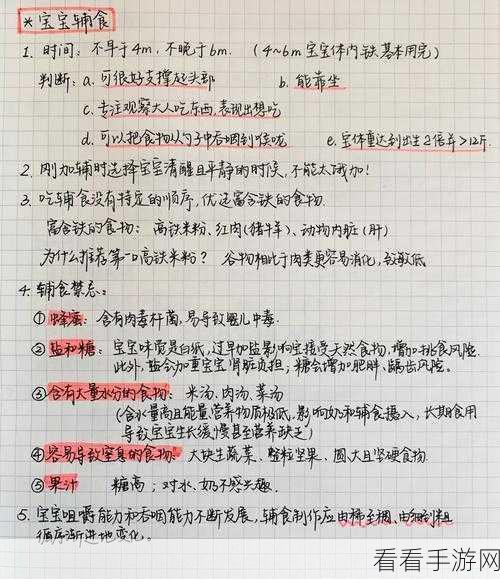 * 宝宝辅食
1. 时间: 不早于4m, 不晚于6m. (4~6m宝宝体内铁基本用完)
判断: a. 可很好支撑起头部 b. 能靠坐
c. 专注观察大人吃东西, 表现出想吃
d. 可以把食物从勺子中吞咽到喉咙 e. 宝体重达到出生2倍并>12斤.
2. 刚加辅时选择宝宝清醒且平静的时候, 不能太饿加!
3. 吃辅食没有特定的顺序, 优选富含铁的食物.
富含铁的食物: 高铁米粉、红肉(猪牛羊)、动物内脏(肝)
为什么推荐第一口高铁米粉? 谷物相比于肉类更容易消化, 致敏低
4. 辅食禁忌:
① 蜂蜜: 含有肉毒杆菌, 易导致婴儿中毒.
② 盐和糖: 宝宝味觉是白纸, 过早加盐影响宝接受天然食物, 增加挑食风险.
此外, 盐会加重宝宝肾脏负担; 糖会增加肥胖、龋齿风险.
③ 含有大量水分的食物: 米汤、肉汤、菜汤
(含水量高且能量营养物质极低, 影响奶和辅食摄入, 长期食用
导致宝宝生长缓慢甚至营养缺乏)
④ 容易导致窒息的食物: 大块生蔬菜、整粒坚果、圆、大且坚硬食物.
⑤ 果汁 糖高; 对水、奶不感兴趣.
5. 宝宝咀嚼能力和吞咽能力不断发展, 辅食制作应由稀至稠、由细到粗
循序渐进地变化。
看看手游网